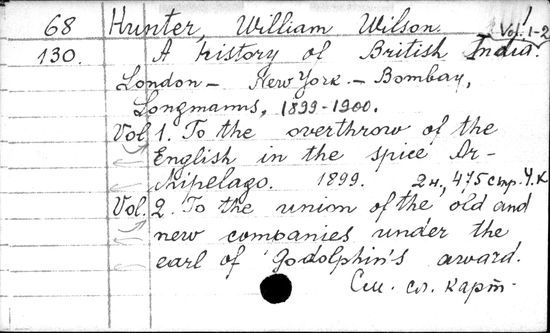 68 Hunter, William Wilson. Vol. 1-2
130. A history of British India.
London - New York - Bombay,
Longmanns, 1899-1900.
Vol. 1. To the overthrow of the
English in the spice Ar-
chipelago. 1899. 2н., 475 стр. Ч.К
Vol. 2. To the union of the old and
new companies under the
earl of Godolphin's award.
См. сл. карт-